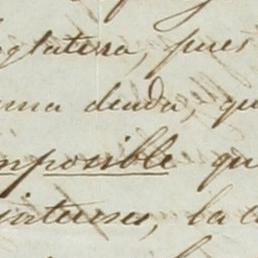 glaterra, pues
una deuda, qu
mposible qu
intereses, la c